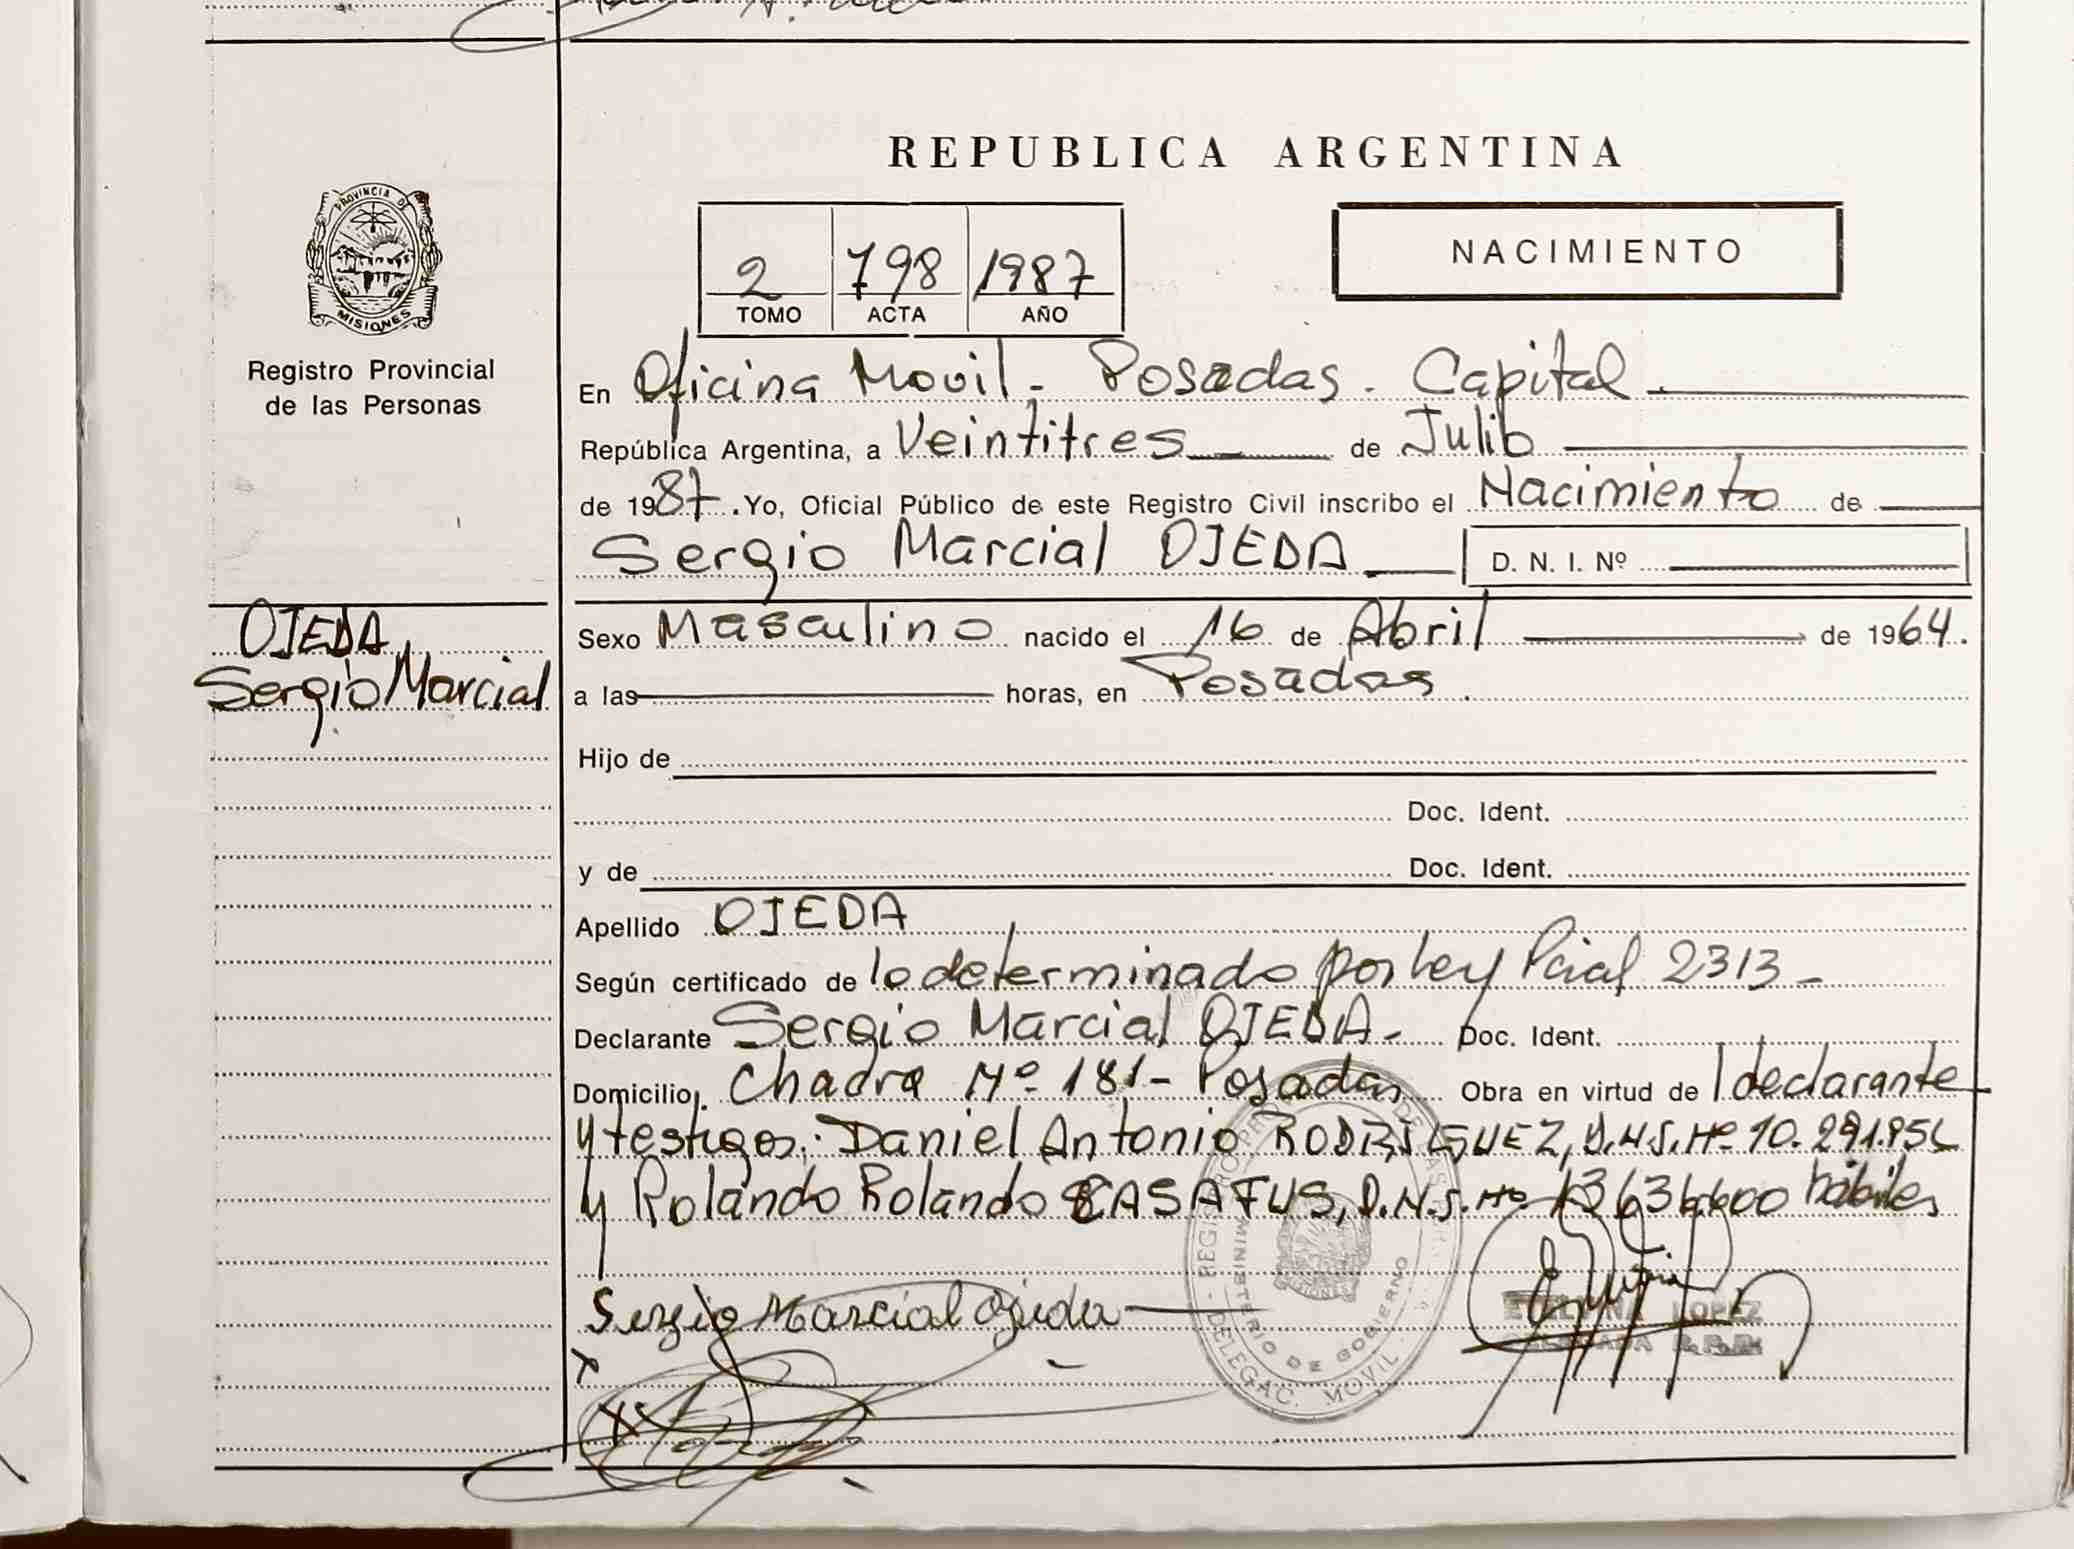 REPUBLICA ARGENTINA
PROVINCIA D
MISIONES
Registro Provincial
de las Personas
2 798 1987
TOMO ACTA AÑO
NACIMIENTO
En Oficina Movil - Posadas - Capital
República Argentina, a Veintitres de Julio
de 1987. Yo, Oficial Público de este Registro Civil inscribo el Nacimiento de
Sergio Marcial OJEDA D. N. I. Nº
OJEDA
Sergio Marcial
Sexo Masculino nacido el 16 de Abril de 1964.
a las horas, en Posadas.
Hijo de
Doc. Ident.
y de Doc. Ident.
Apellido OJEDA
Según certificado de lo determinado por Ley Pcial 2313 -
Declarante Sergio Marcial OJEDA - Doc. Ident.
Domicilio. Chacra Nº 181 - Posadas Obra en virtud de l declarante
y testigos: Daniel Antonio RODRIGUEZ, D.N.I. Nº
y Rolando Rolando CASAFUS, D.N.I. Nº hábiles
Sergio Marcial Ojeda
x
xx
MINISTERIO DE GOBIERNO
DELEGAC. MOVIL
LOPEZ